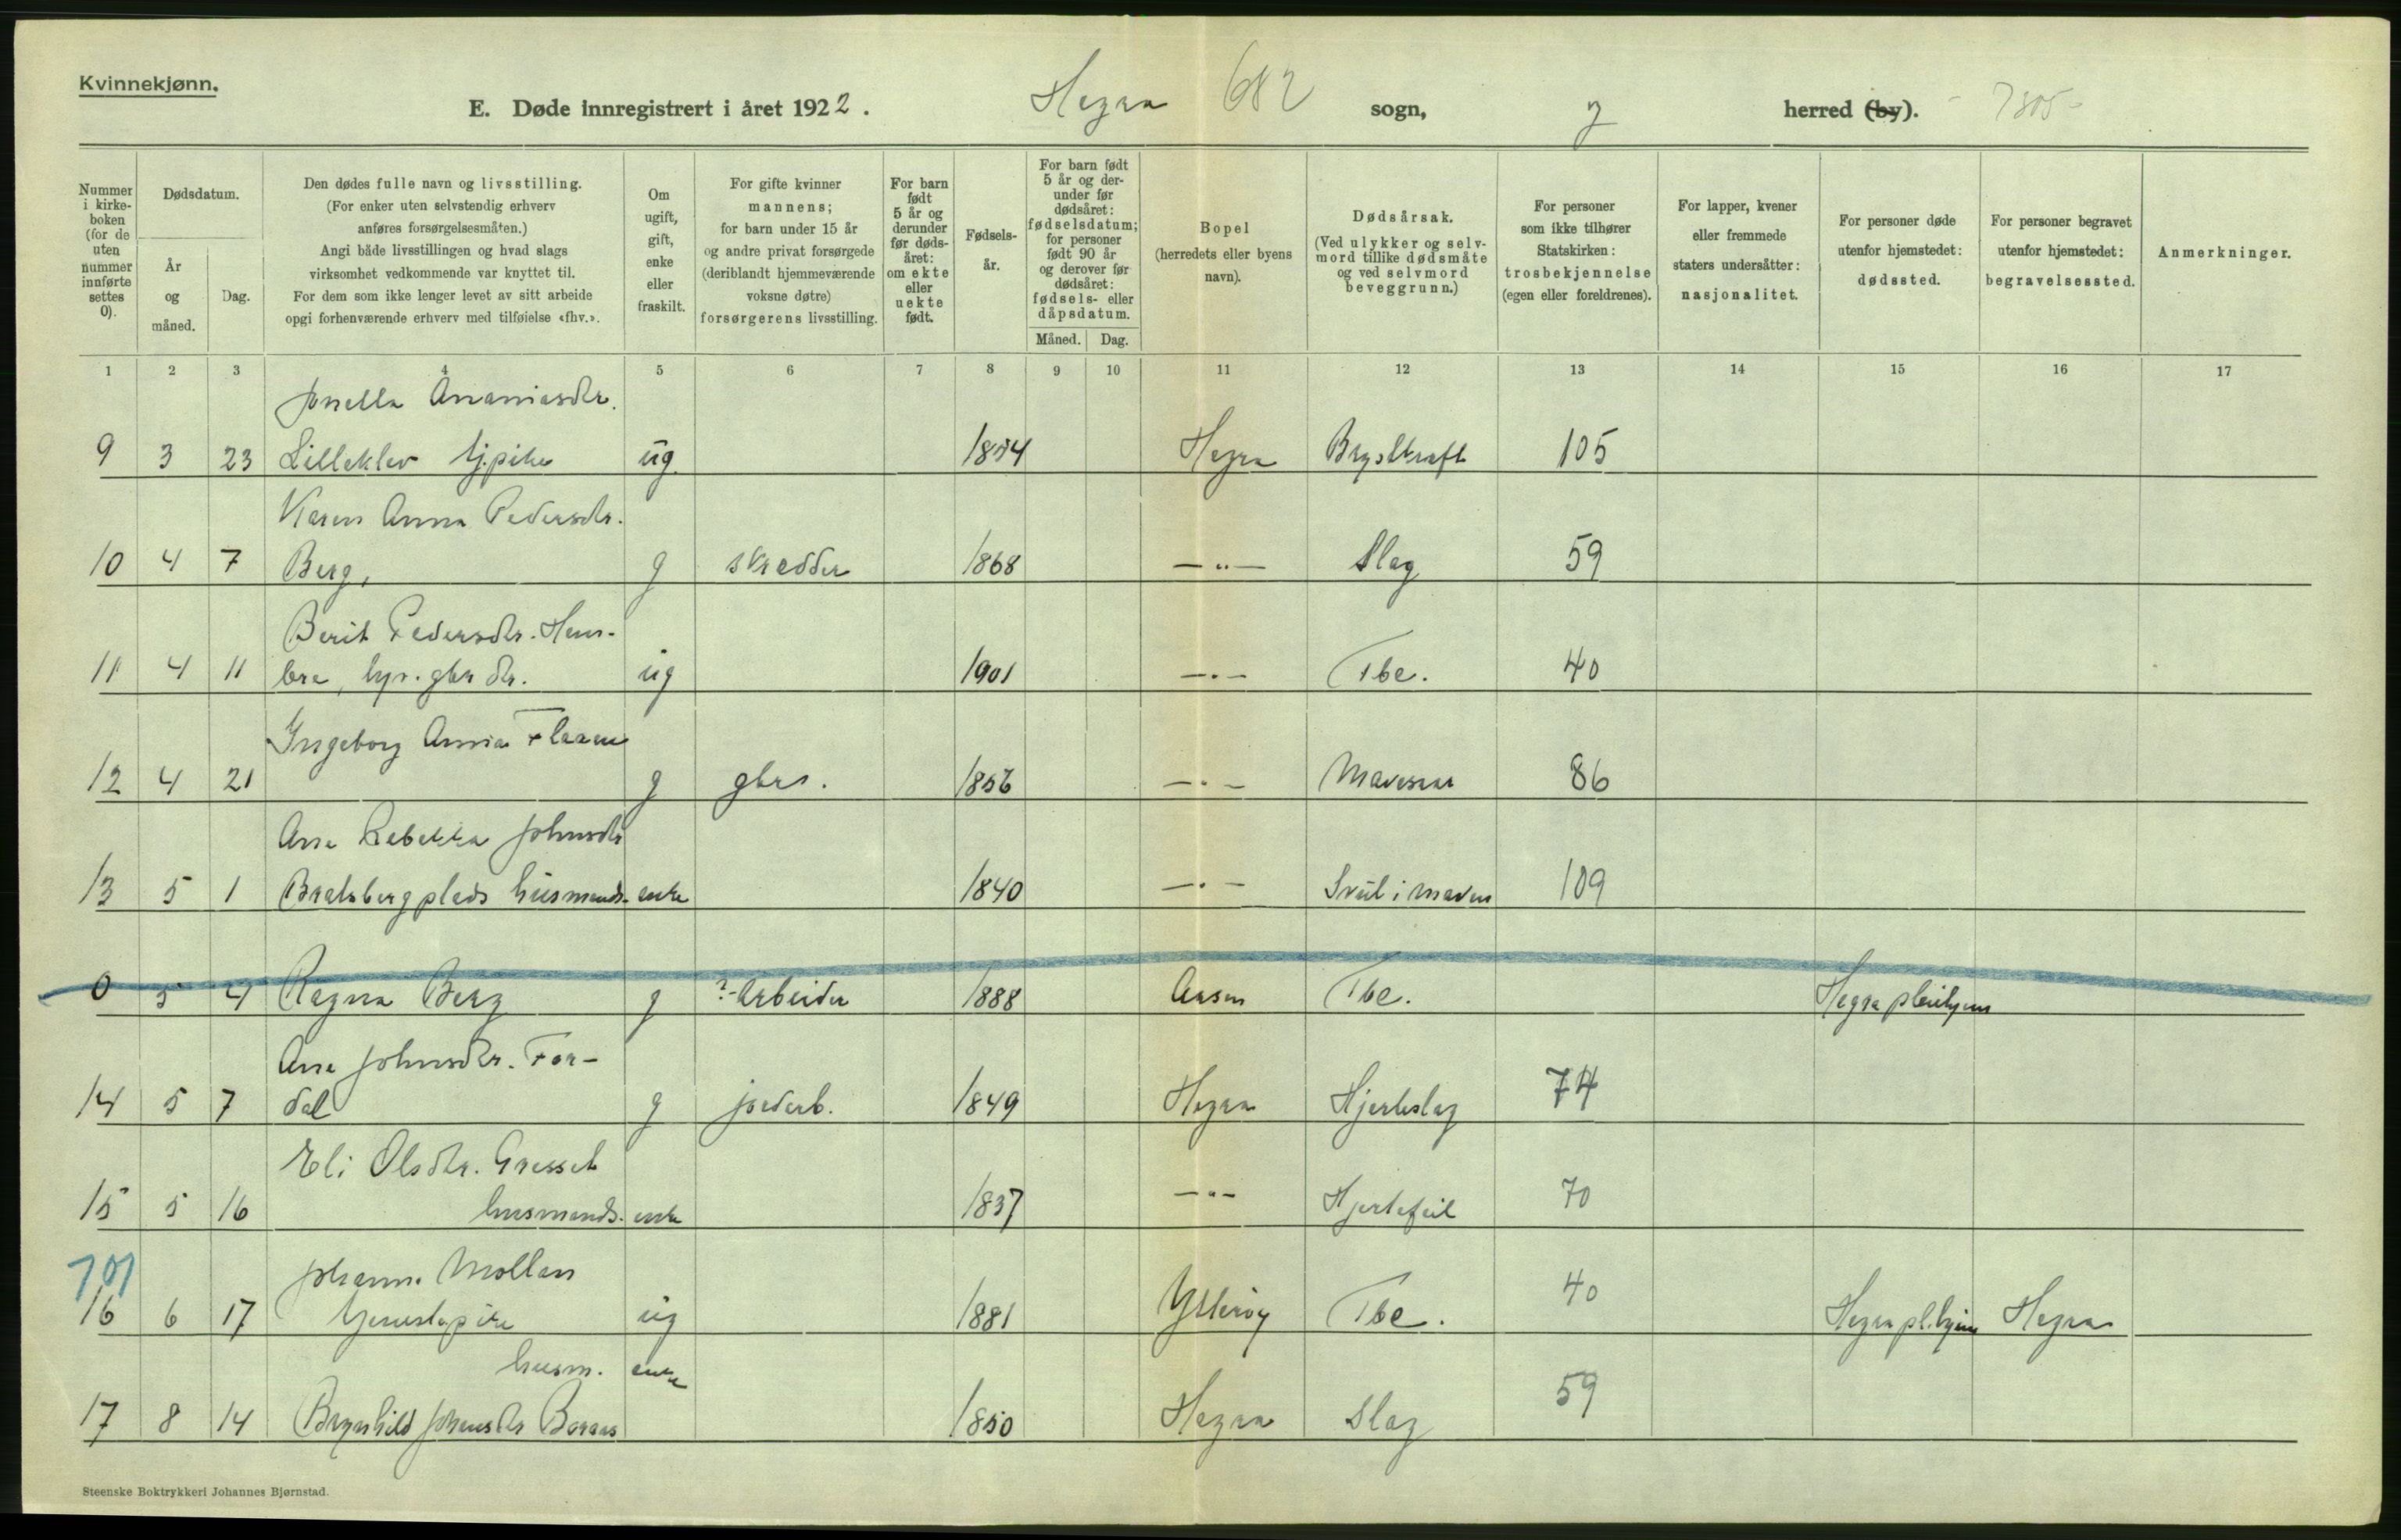 Kvinnekjønn.
E. Døde innregistrert i året 1922. Hegra 682 sogn, 7 herred (by). - 7305-
Nummer i kirkeboken (for de uten nummer innførte settes 0).
Dødsdatum.
År og måned.
Dag.
Den dødes fulle navn og livsstilling.
(For enker uten selvstendig erhverv
anføres forsørgelsesmåten.)
Angi både livsstillingen og hvad slags
virksomhet vedkommende var knyttet til.
For dem som ikke lenger levet av sitt arbeide
opgi forhenværende erhverv med tilføielse «fhv.».
Om ugift, gift, enke eller fraskilt.
For gifte kvinner
mannens;
for barn under 15 år
og andre privat forsørgede
(deriblandt hjemmeværende
voksne døtre)
forsørgerens livsstilling.
For barn født 5 år og derunder før dødsåret: om ekte eller uekte født.
Fødselsår.
For barn født 5 år og derunder før dødsåret: fødselsdatum; for personer født 90 år og derover før dødsåret: fødsels- eller dåpsdatum.
Måned. Dag.
Bopel
(herredets eller byens
navn).
Dødsårsak.
(Ved ulykker og selvmord tillike dødsmåte og ved selvmord beveggrunn.)
For personer
som ikke tilhører
Statskirken:
trosbekjennelse
(egen eller foreldrenes).
For lapper, kvener
eller fremmede
staters undersåtter:
nasjonalitet.
For personer døde
utenfor hjemstedet:
dødssted.
For personer begravet
utenfor hjemstedet:
begravelsessted.
Anmerkninger.
1 2 3 4 5 6 7 8 9 10 11 12 13 14 15 16 17
Ananiasdtr.
9 3 23 Lilleklev tj.pike ug. 1854 Hegra Brystkræft 105
Karen Anna Pedersdtr.
10 4 7 Berg, g skrædder 1868 —"— Slag 59
Berit Pedersdtr. Hem-
11 4 11 bre, gbr dtr. ug 1901 —"— Tbc. 40
Ingeborg Anna Flaren
12 4 21 g gbr. 1856 —"— Mavesaar 86
Ane Rebekka Johnsdtr
13 5 1 Bratsberg plads husmands- enke 1840 —"— Svul i maven 109
0 5 4 Ragna Berg g ?-Arbeider 1888 Aasen Tbc. Hegra pleiehjem
Ane Johnsdtr. For-
14 5 7 dal g jordarb. 1849 Hegra Hjerteslag 74
Eli Olsdtr. Gresset
15 5 16 husmands- enke 1837 —"— Hjertefeil 70
701
Johanna Mollan
16 6 17 tjenestepike ug 1881 Ytterøy Tbc. 40 Hegra pl.hjem Hegra
husm. enke
17 8 14 Brynhild Johnsdtr Boraas 1850 Hegra Slag 59
Steenske Boktrykkeri Johannes Bjørnstad.